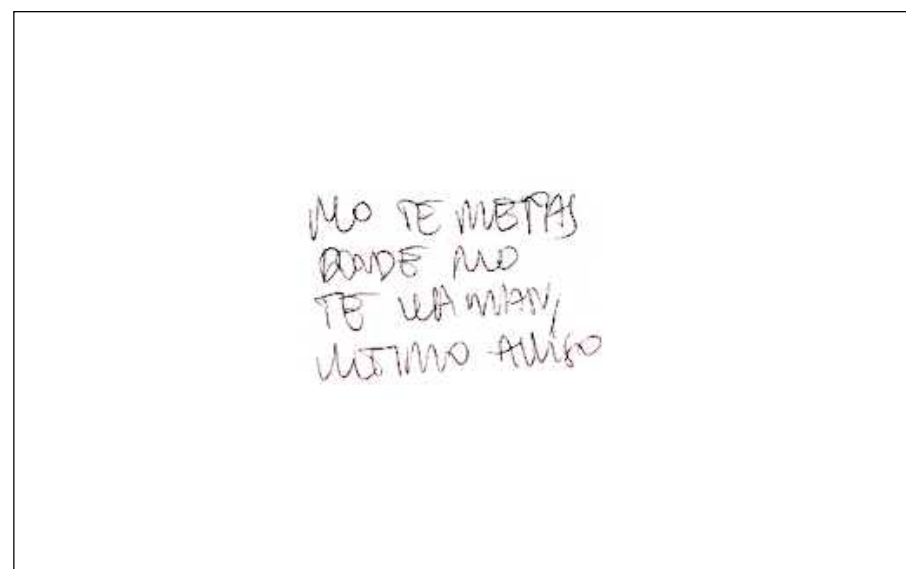 NO TE METAS
DONDE NO
TE LLAMAN,
ULTIMO AVISO